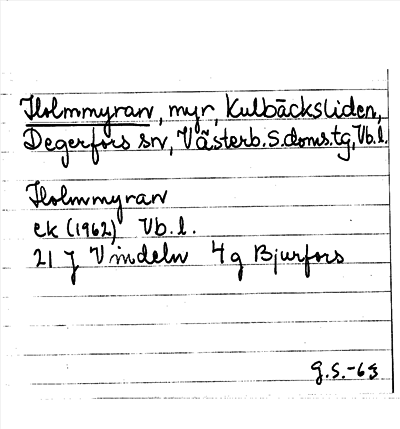 Holmmyran, myr, Kulbäcksliden,
Degerfors sn, Västerb. S. doms. tg, Vb. l.
Holmmyran
ek (1962) Vb. l.
21 J Vindeln 4 g Bjurfors
G.S.-63